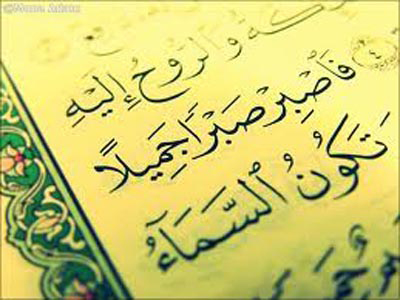 وَالرُّوحُ إِلَيْهِ
٤ فَاصْبِرْ صَبْرًا جَمِيلًا
تَكُونُ السَّمَاءُ